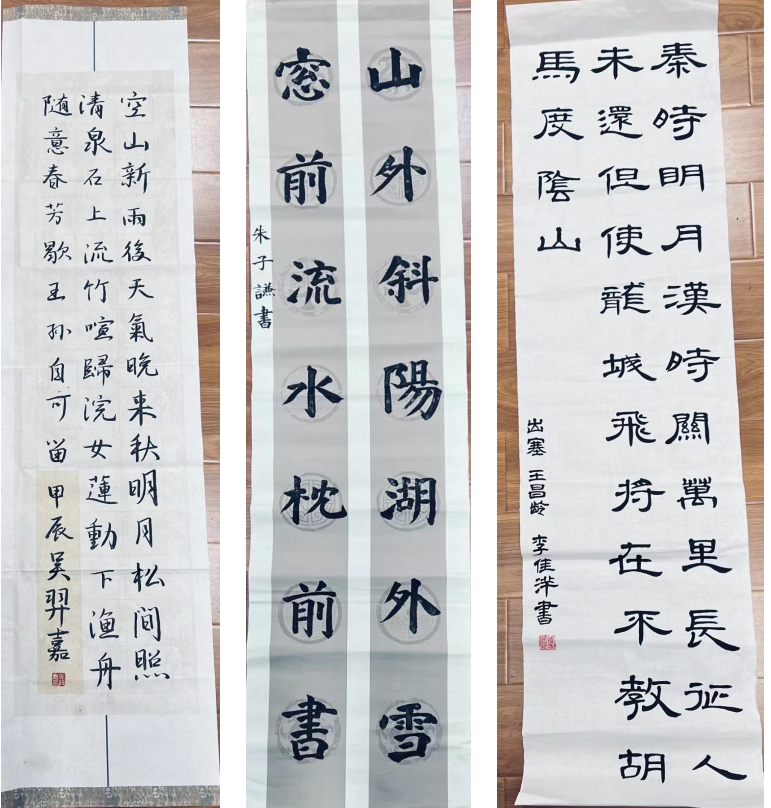 空山新雨後天氣晚来秋明月松間照
清泉石上流竹喧歸浣女蓮動下渔舟
随意春芳歇王孙自可留 甲辰吴羿嘉
山外斜陽湖外雪
窓前流水枕前書
朱子謙書
秦時明月漢時關萬里長征人
未還但使龍城飛将在不教胡
馬度陰山
出塞 王昌龄 李佳洋書